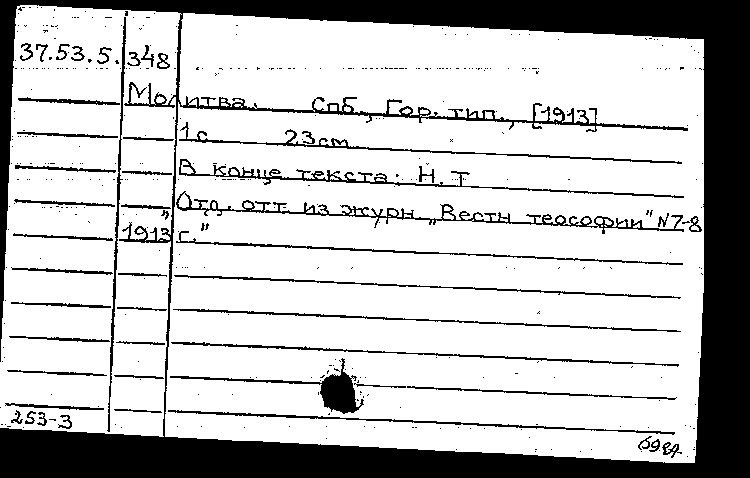 37.53.5.348
Молитва. Спб., Гор. тип., [1913]
1 с 23 cm
В конце текста: Н. Т
Отд. отт. из журн „Вестн теософии" N 7-8
„1913 г."
253-3